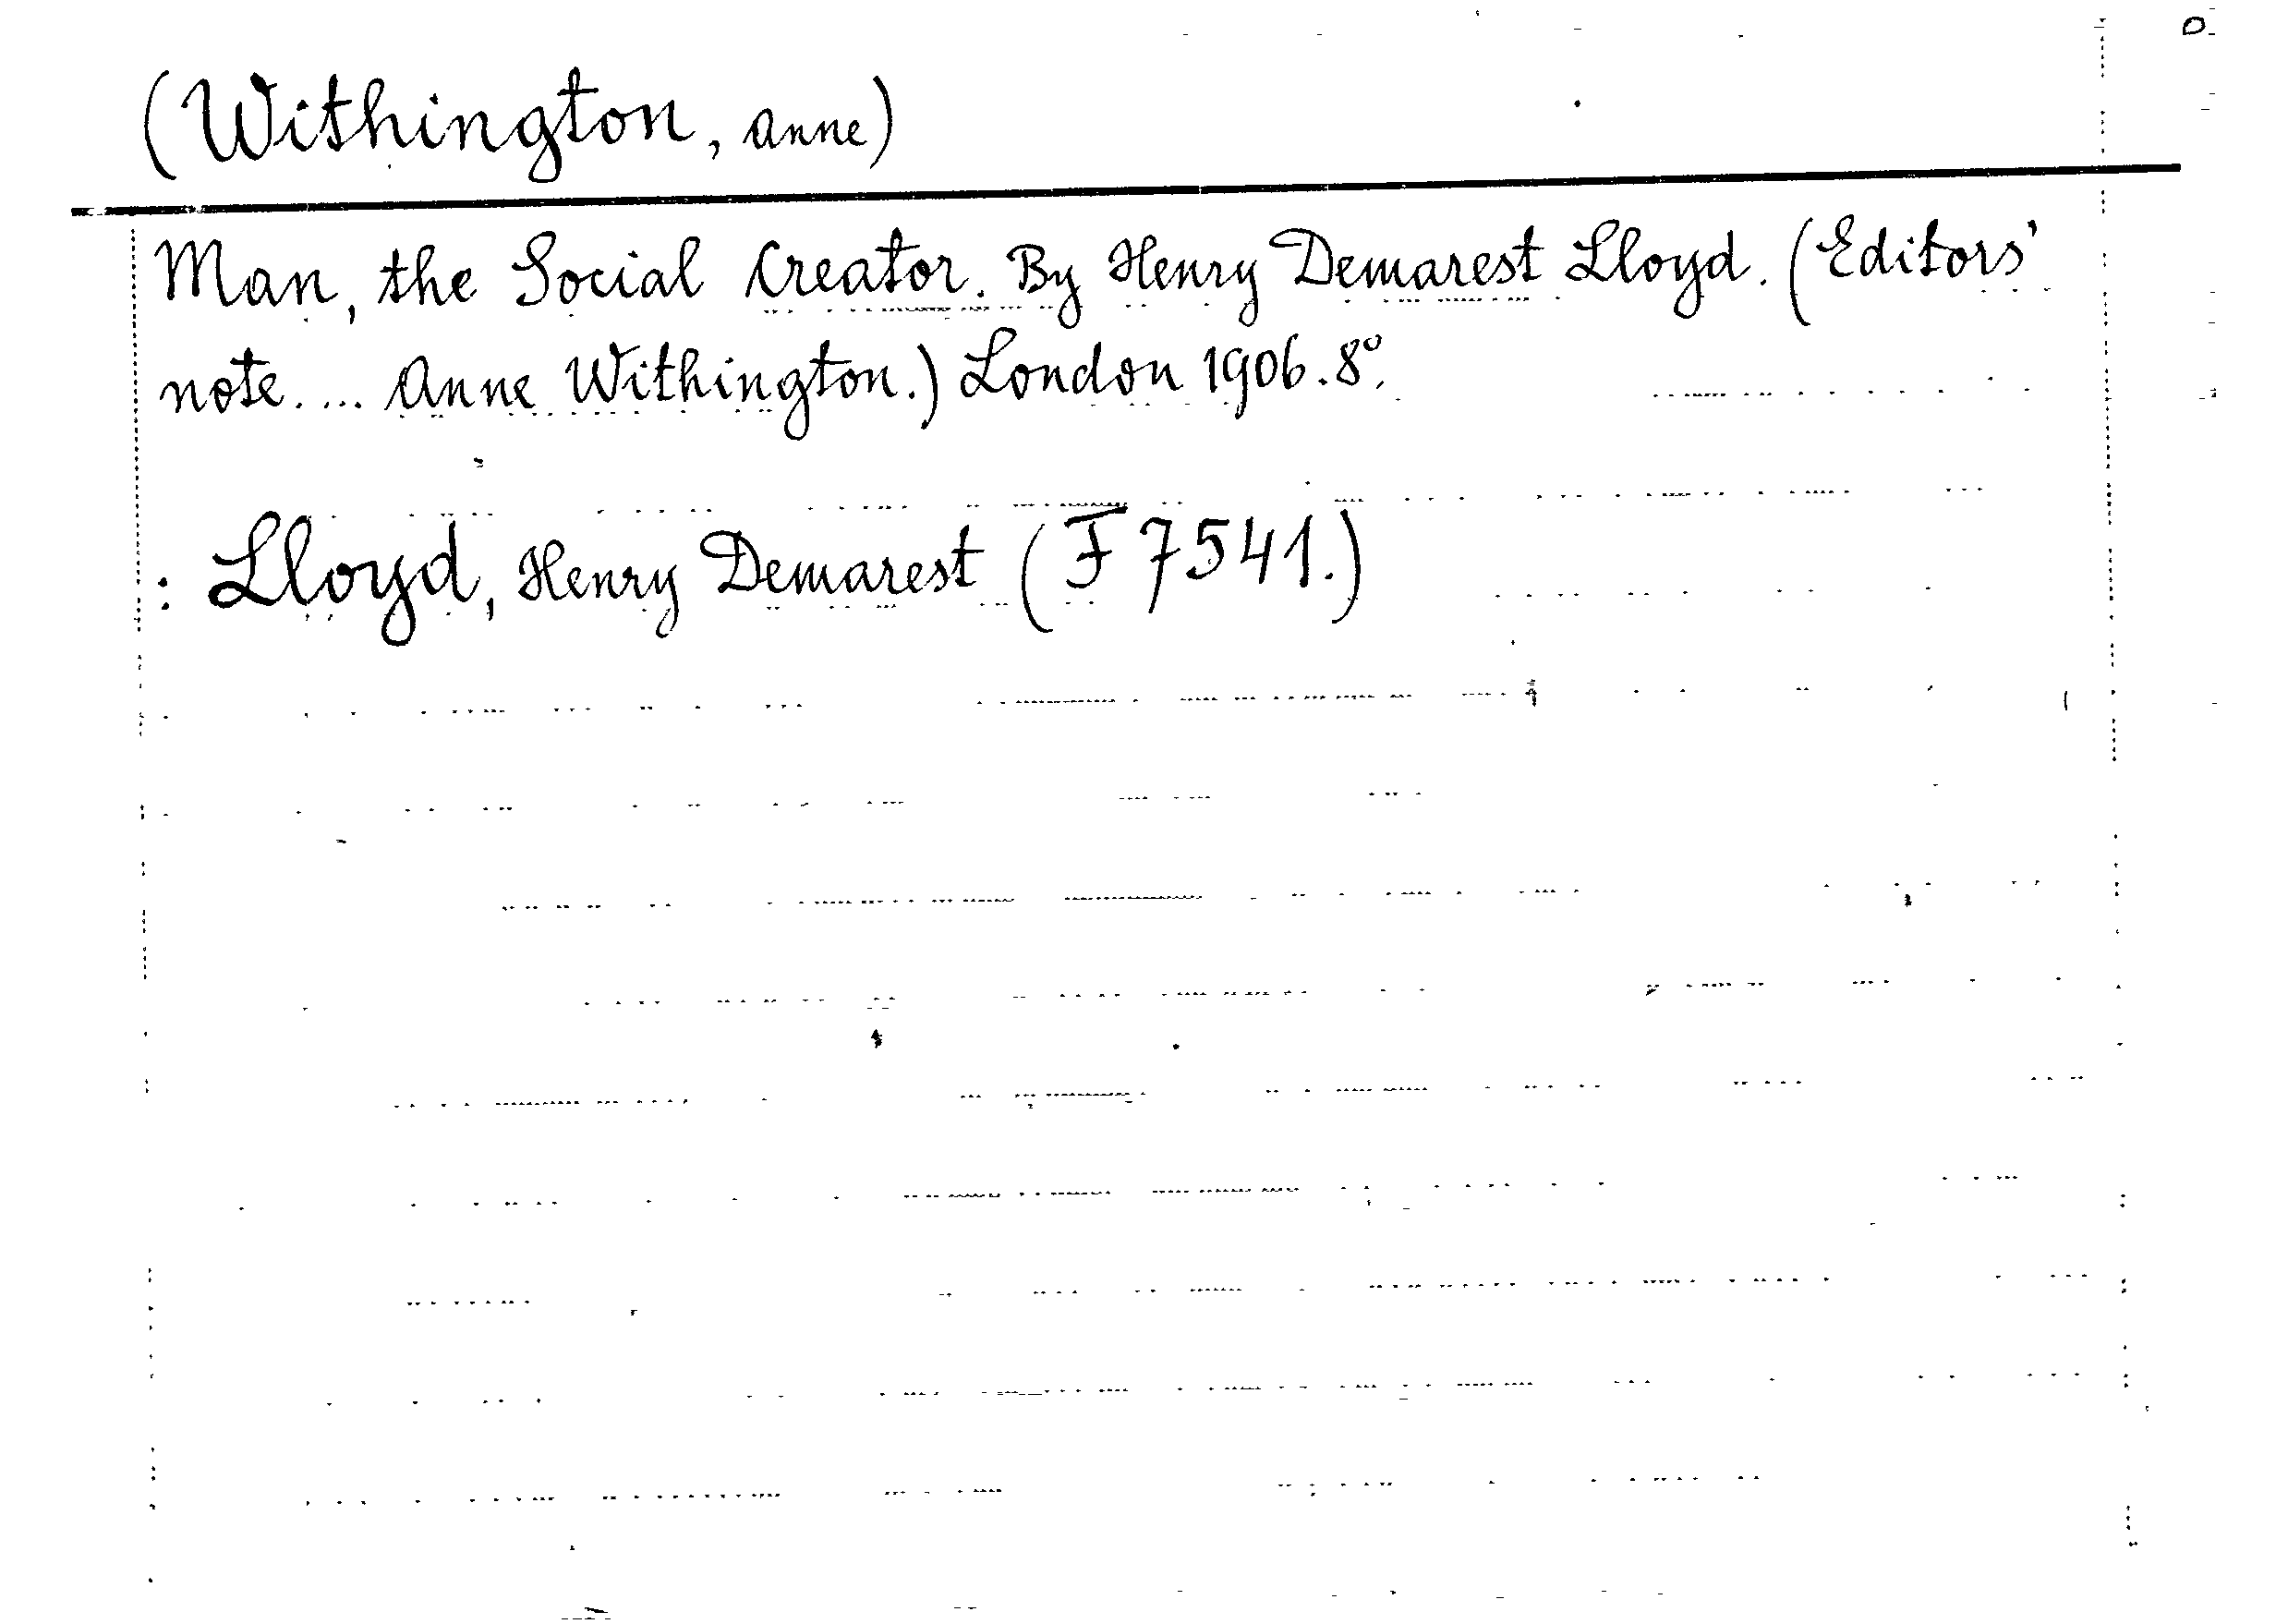 (Withington, Anne)
Man, the Social Creator. By Henry Demarest Lloyd. (Editors'
note. ... Anne Withington.) London 1906. 8°.
: Lloyd, Henry Demarest (F 7541.)